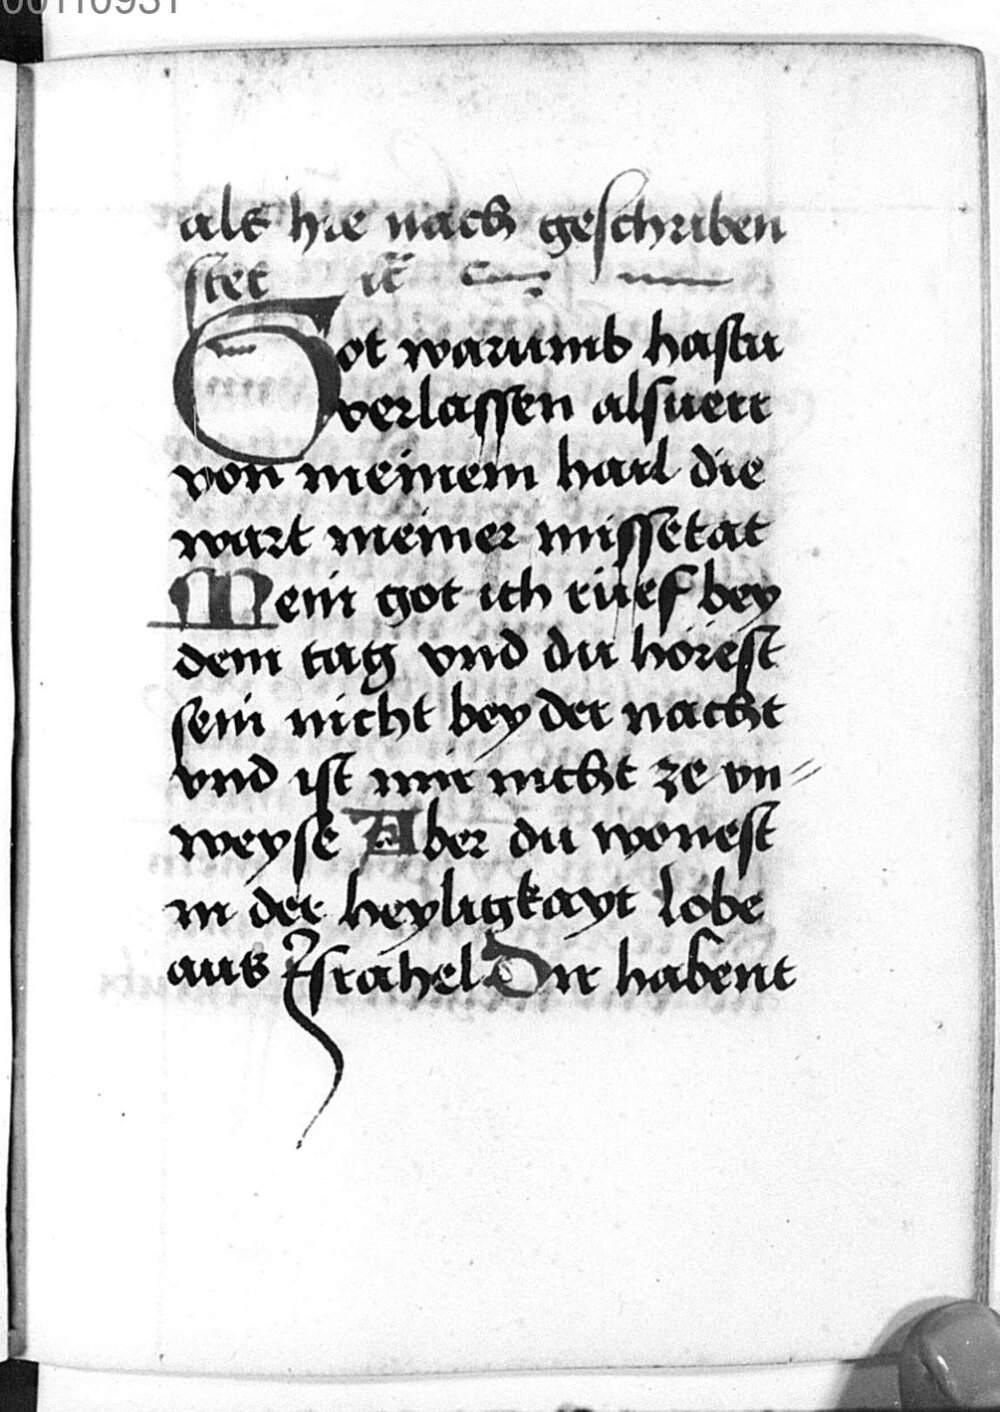 als hie nach geschriben
stet
Got warumb hastu
verlassen alsuerr
von meinem hail die
wart meiner missetat
Mein got ich rüef bey
dem tag vnd du hörest
sein nicht bey der nacht
vnd ist mir nicht ze vn=
weyse Aber du wonest
in der heyligkayt lobe
aus Israhel Dir habent